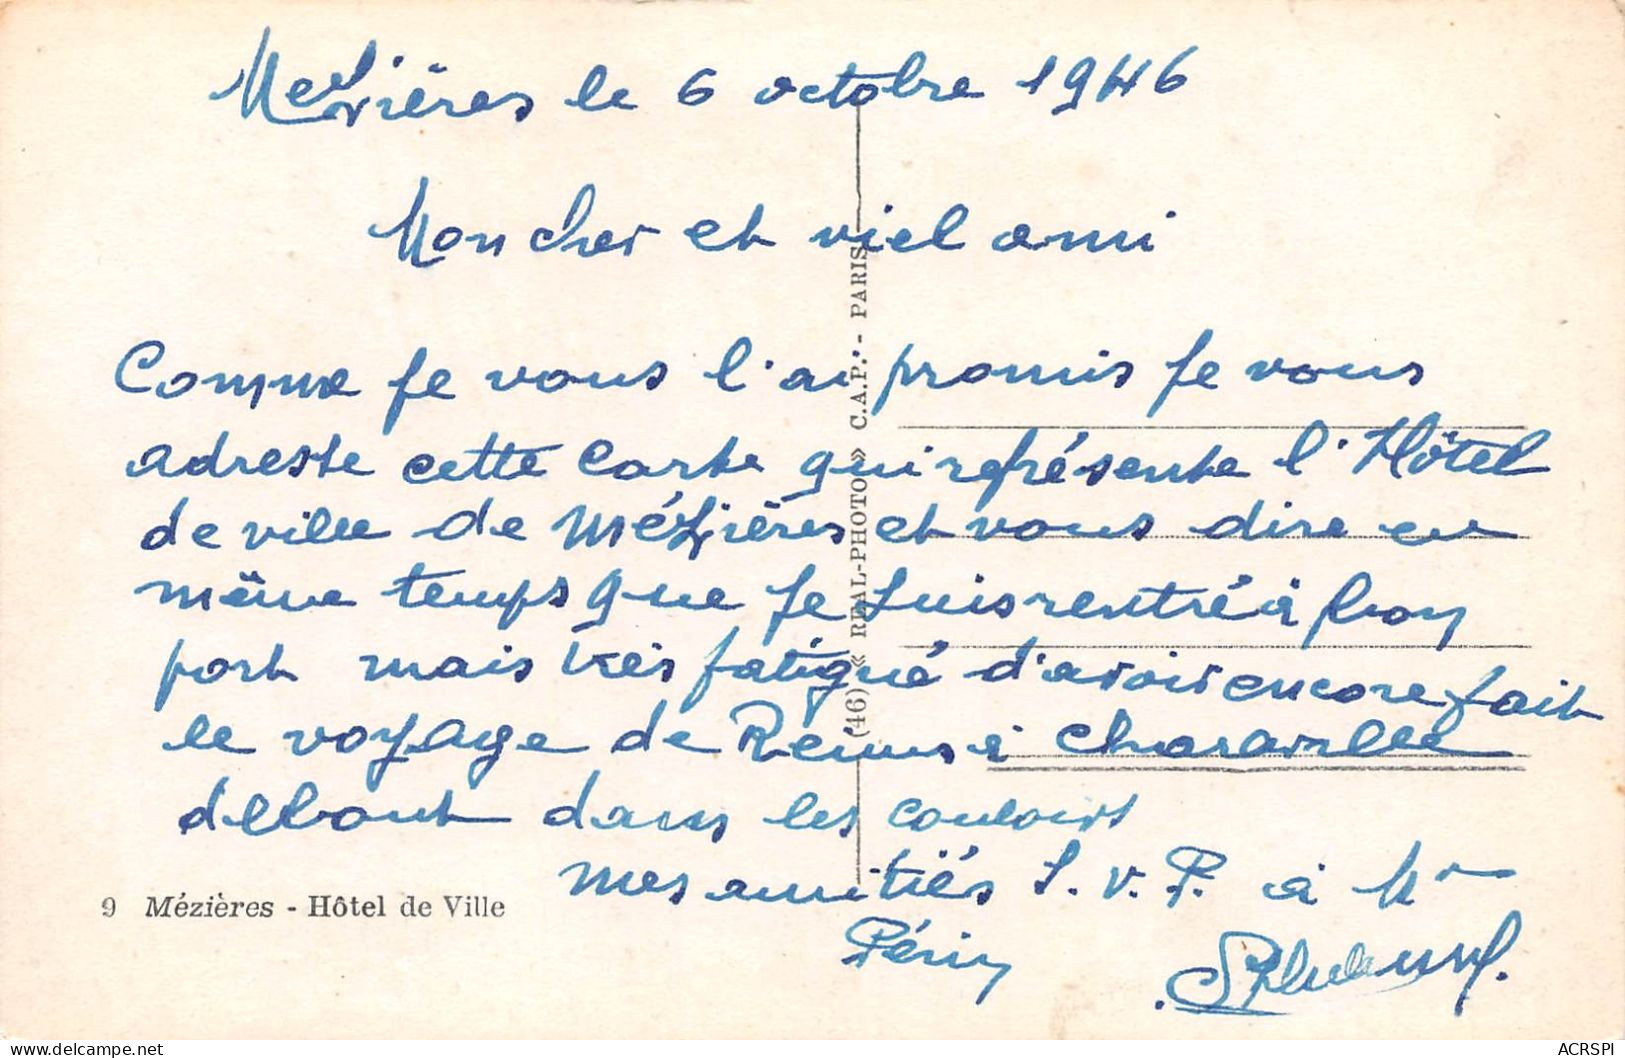 Mezières le 6 octobre 1946
Mon cher et viel ami
Comme je vous l'ai promis je vous
adresse cette carte qui représente l'Hôtel
de ville de Mézières et vous dire en
même temps que je suis rentré à bon
port mais très fatigué d'avoir encore fait
le voyage de Reims à Charaville
debout dans les couloirs
mes amitiés S.V.P. à Mr
Périn
9 Mézières - Hôtel de Ville
(46) « REAL-PHOTO » C.A.P. - PARIS
ACRSPI